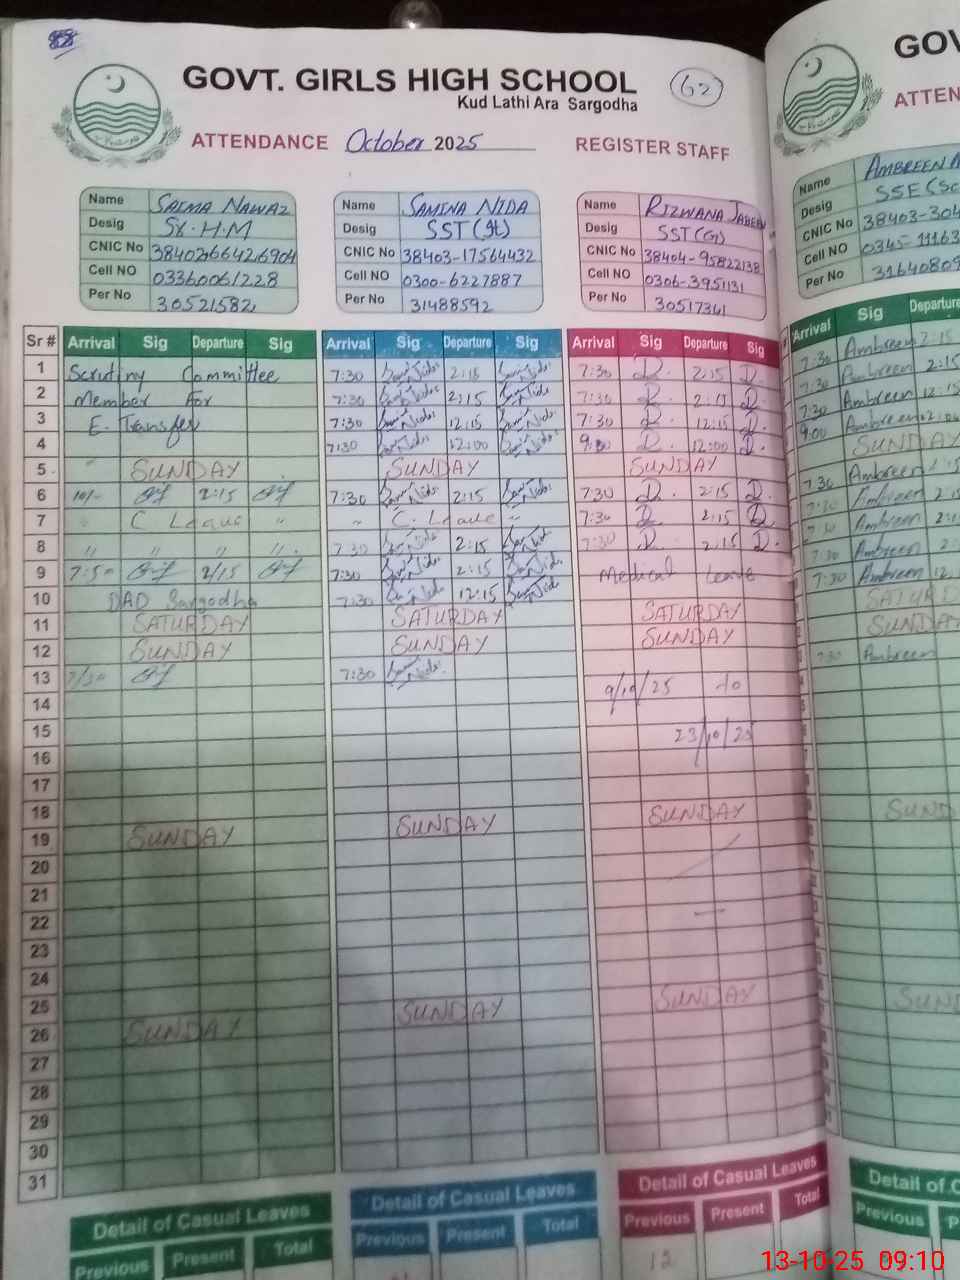 GOVT. GIRLS HIGH SCHOOL
62
Kud Lathi Ara Sargodha
ATTENDANCE October 2025 REGISTER STAFF
Name SAIMA NAWAZ
Desig Sr. H.M
CNIC No 3840266426904
Cell NO 03360061228
Per No 30521582
Name SAMINA NIDA
Desig SST
CNIC No 38403-17564432
Cell NO 0300-6227887
Per No 31488592
Name RIZWANA JABEEN
Desig SST (G)
CNIC No 38404-95822138
Cell NO 0306-3951131
Per No 30517361
Sr # Arrival Sig Departure Sig Arrival Sig Departure Sig Arrival Sig Departure Sig
1 Scrutiny Committee 7:30 2:15 7:30 2:15
2 Member For 7:30 2:15 7:30 2:15
3 E. Transfer 7:30 12:15 7:30 12:15
4 7:30 12:00 9:00 12:00
5 SUNDAY SUNDAY SUNDAY
6 2:15 7:30 2:15 7:30 2:15
7 C Leave " " C. Leave " 7:30 2:15
8 " " " " 7:30 2:15 7:30 2:15
9 7:50 2/15 7:30 2:15 Medical Leave
10 DAD Sargodha 7:30 12:15
11 SATURDAY SATURDAY SATURDAY
12 SUNDAY SUNDAY SUNDAY
13 7/30 7:30
14 9/10/25 to
15 23/10/25
16
17
18
19 SUNDAY SUNDAY SUNDAY
20
21
22
23
24
25
26 SUNDAY SUNDAY SUNDAY
27
28
29
30
31
Detail of Casual Leaves
Previous Present Total
Detail of Casual Leaves
Previous Present Total
Detail of Casual Leaves
Previous Present Total
12
GOV
ATTEN
Name AMBREEN
Desig SSE (Sc
CNIC No 38403-304
Cell NO 0345-11163
Per No 31640809
Arrival Sig Departure
7:30 Ambreen 2:15
7:30 Ambreen 2:15
7:30 Ambreen 12:15
9:00 Ambreen
SUNDAY
7:30 Ambreen
7:30 Ambreen
7:30 Ambreen
7:30 Ambreen
7:30 Ambreen
SATURD
SUNDAY
7:30 Ambreen
SUND
SUND
Detail of C
Previous P
13-10-25 09:10